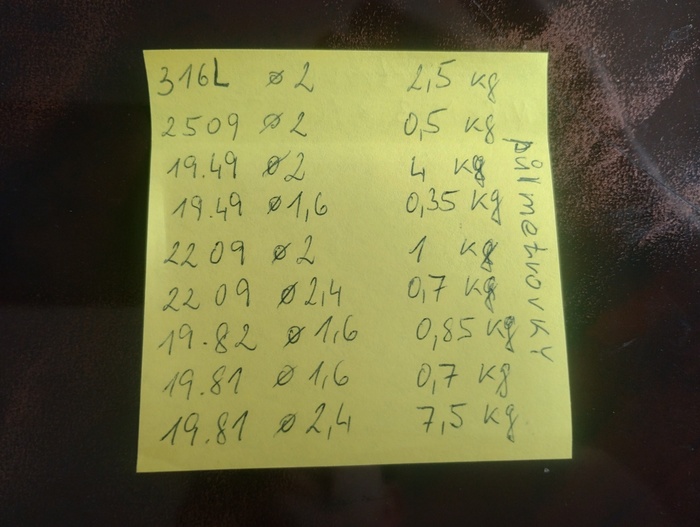 316L ø2 2,5 kg
2509 ø2 0,5 kg
19.49 ø2 4 kg
19.49 ø1,6 0,35 kg
2209 ø2 1 kg
2209 ø2,4 0,7 kg
19.82 ø1,6 0,85 kg
19.81 ø1,6 0,7 kg
19.81 ø2,4 7,5 kg
půlmetrovky